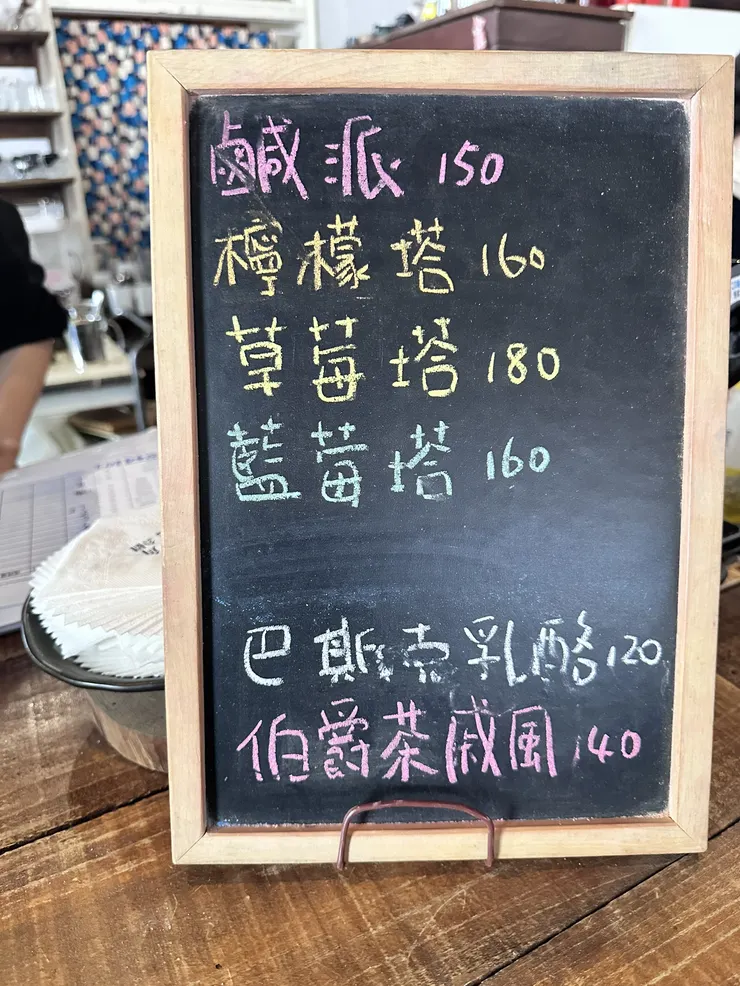 鹹派 150
檸檬塔 160
草莓塔 180
藍莓塔 160
巴斯克乳酪 120
伯爵茶戚風 140